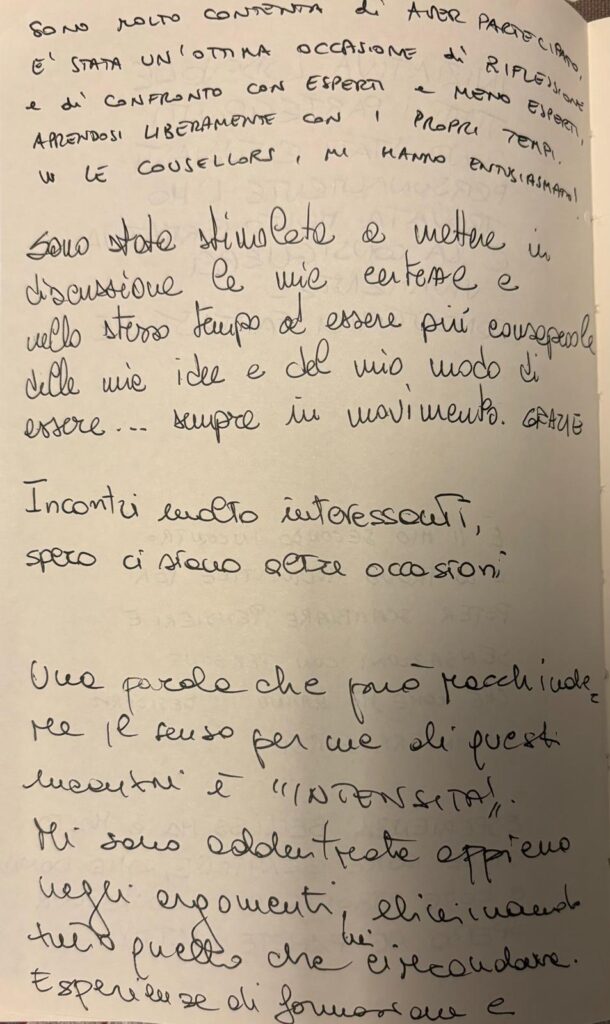 SONO MOLTO CONTENTA di AVER PARTECIPATO,
E' STATA UN'OTTIMA OCCASIONE di RIFLESSIONE
e di CONFRONTO CON ESPERTI e MENO ESPERTI,
APRENDOSI LIBERAMENTE CON I PROPRI TEMPI.
W LE COUSELLORS, MI HANNO ENTUSIASMATO!
Sono stata stimolata a mettere in
discussione le mie certezze e
nello stesso tempo ad essere più consapevole
delle mie idee e del mio modo di
essere... sempre in movimento. GRAZIE
Incontri molto interessanti,
spero ci siano altre occasioni
Una parola che può racchiude_
re il senso per me di questi
incontri è "INTENSITA'".
Mi sono addentrata appieno
negli argomenti, eliminando
tutto quello che mi circondava.
Esperienze di formazione e